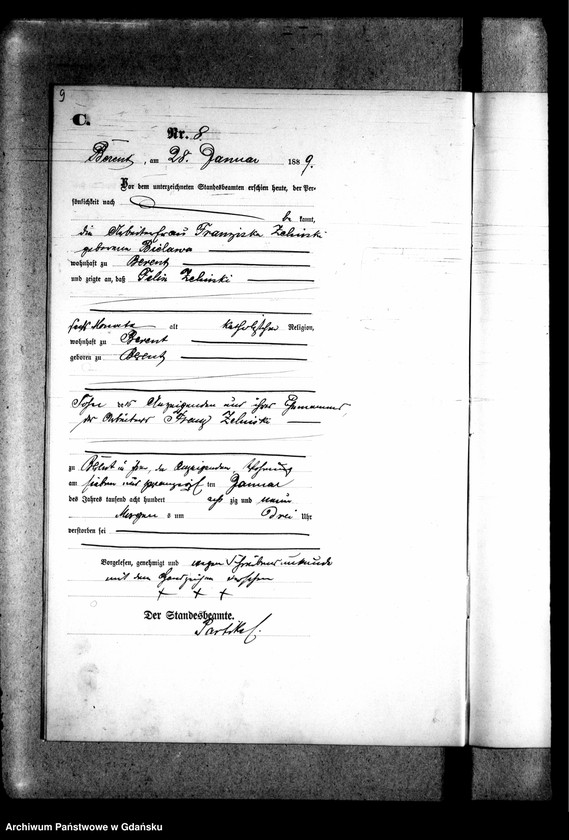 9
C.
Nr. 8.
Berent, am 28. Januar 1889.
Vor dem unterzeichneten Standesbeamten erschien heute, der Per-
sönlichkeit nach
be kannt,
die Arbeiterfrau Franziska Zelinski
geborene Bielawa
wohnhaft zu Berent
und zeigte an, daß Felix Zelinski
sechs Monate alt katholischer Religion,
wohnhaft zu Berent
geboren zu Berent
Sohn der Anzeigenden und ihres Ehemannes,
des Arbeiters Franz Zelinski
zu Berent in der Anzeigenden Wohnung
am sieben und zwanzigsten Januar
des Jahres tausend acht hundert acht zig und neun
Morgens um Drei Uhr
verstorben sei
Vorgelesen, genehmigt und wegen Schreibensunkunde
mit dem Handzeichen derselben
+ + +
Der Standesbeamte.
Archiwum Państwowe w Gdańsku